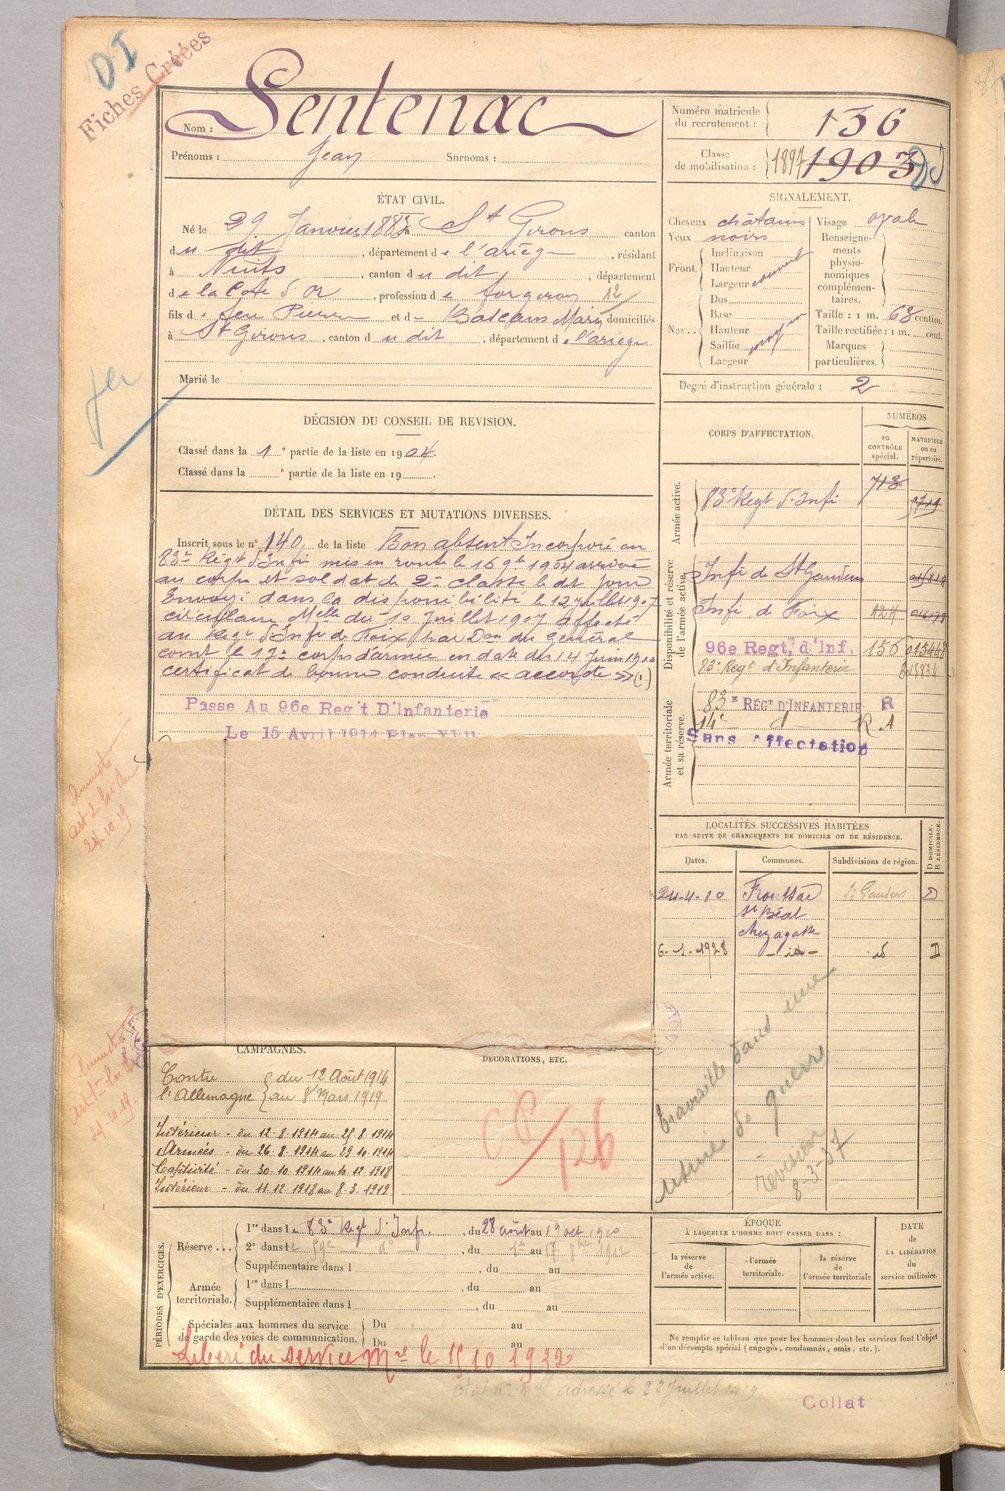 DI
Fiches Créées
Nom : Sentenac
Prénoms : Jean Surnoms :
Numéro matricule du recrutement : 136
Classe de mobilisation : 1897 1903
ÉTAT CIVIL.
Né le 29 Janvier 1883 à St Girons canton
du dit, département de l'ariège, résidant
à Nuits, canton du dit, département
de la Côte d'Or, profession de forgeron 12
fils de feu Pierre et de Marie domiciliés
à St Girons, canton du dit, département de l'ariège.
Marié le
SIGNALEMENT.
Cheveux châtains
Yeux noirs
Front. Inclinaison
Hauteur
Largeur
Nez Dos
Base moyen
Hauteur
Saillie
Largeur
Visage ovale
Renseignements physionomiques complémentaires.
Taille : 1 m. 68 centim.
Taille rectifiée : 1 m. cent.
Marques particulières.
Degré d'instruction générale : 2
DÉCISION DU CONSEIL DE REVISION.
Classé dans la 1e partie de la liste en 1904.
Classé dans la e partie de la liste en 19 .
DÉTAIL DES SERVICES ET MUTATIONS DIVERSES.
Inscrit sous le n° 140 de la liste Bon absent Incorporé au
83e Régt d'Infie mis en route le 15 9bre 1904 arrivé
au corps et soldat de 2e classe le dit jour
Envoyé dans la disponibilité le 12 juillet 1907
circulaire Melle du 10 Juillet 1907 affecté
au Régt d'Infie de Foix par Don du général
comt le 17e corps d'armée en date du 14 Juin 1910
certificat de bonne conduite « accordé »
Passe Au 96e Reg't D'Infanterie
Le 15 Avril 1914 Plan XVII
CORPS D'AFFECTATION.
NUMÉROS
AU CONTRÔLE spécial.
MATRICULE OU AU répertoire.
Armée active.
83e Regt d'Infie 713
Disponibilité et réserve de l'armée active.
Infie de St Gaudens
Infie de Foix
96e Regt, d'Inf. 156
83e Régt d'Infanterie
Armée territoriale et sa réserve.
83e RÉGt D'INFANTERIE R
14e d R.A
Sans Affectation
LOCALITÉS SUCCESSIVES HABITÉES
PAR SUITE DE CHANGEMENTS DE DOMICILE OU DE RÉSIDENCE.
Dates. Communes. Subdivisions de région. D DOMICILE. R RÉSIDENCE.
24-4-10 St Gaudens D
St Béat
6-1-1928 -id- id D
Amnistié
art 2 loi du
24.10.19
Amnistié
24.10.19.
CAMPAGNES.
Contre l'Allemagne du 12 Août 1914
au 8 Mars 1919.
Intérieur - du 12-8-1914 au 25-8-1914
Armées - du 26-8-1914 au 29-10-1914
Captivité - du 30-10-1914 au 10-12-1918
Intérieur - du 11-12-1918 au 8-3-1919.
DÉCORATIONS, ETC.
126
travaille dans une
usine de guerre
révision
8-3-37
PÉRIODES D'EXERCICES.
Réserve 1re dans le 83e Régt d'Inf., du 28 août au 19 oct 1910
2e dans le 59e do, du 1er au 17 1912
Supplémentaire dans l , du au
Armée territoriale. 1re dans l , du au
Supplémentaire dans l , du au
Spéciales aux hommes du service de garde des voies de communication. Du au
Du au
Libéré du service Mre le 15 10 1932
ÉPOQUE
À LAQUELLE L'HOMME DOIT PASSER DANS :
la réserve de l'armée active.
l'armée territoriale.
la réserve de l'armée territoriale
DATE DE LA LIBÉRATION du service militaire.
Ne remplir ce tableau que pour les hommes dont les services font l'objet
d'un décompte spécial (engagés, condamnés, omis, etc.).
adressé le 22 Juillet 1919
Collat